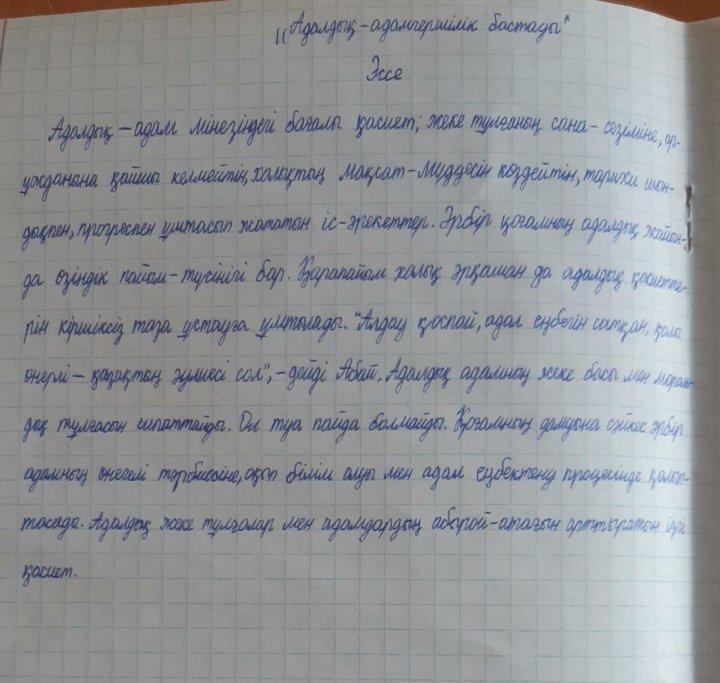 "Адалдық-адамгершілік бастауы"
Эссе
Адалдық – адам мінезіндегі бағалы қасиет, жеке тұлғаның сана-сезіміне, ар-
ұжданына қайшы келмейтін, халықтың мақсат-мүддесін көздейтін, тарихи шын-
дықпен, прогреспен ұштасып жататын іс-әрекеттер. Әрбір қоғамның адалдық жайын-
да өзіндік пайым-түсінігі бар. Қарапайым халық әрқашан да адалдық қасиетте-
рін кіршіксіз таза ұстауға ұмтылады. "Алдау қоспай, адал еңбегін сатқан, қолы
өнерлі – қазақтың әулиесі сол", – дейді Абай. Адалдық адамның жеке басы мен мораль-
дық тұлғасын сипаттайды. Ол туа пайда болмайды. Қоғамның дамуына сәйкес әрбір
адамның өнегелі тәрбиесіне, оқып білім алуы мен адал еңбектену процесінде қалып-
тасады. Адалдық жеке тұлғалар мен адамдардың абырой-атағын арттыратын ізгі
қасиет.